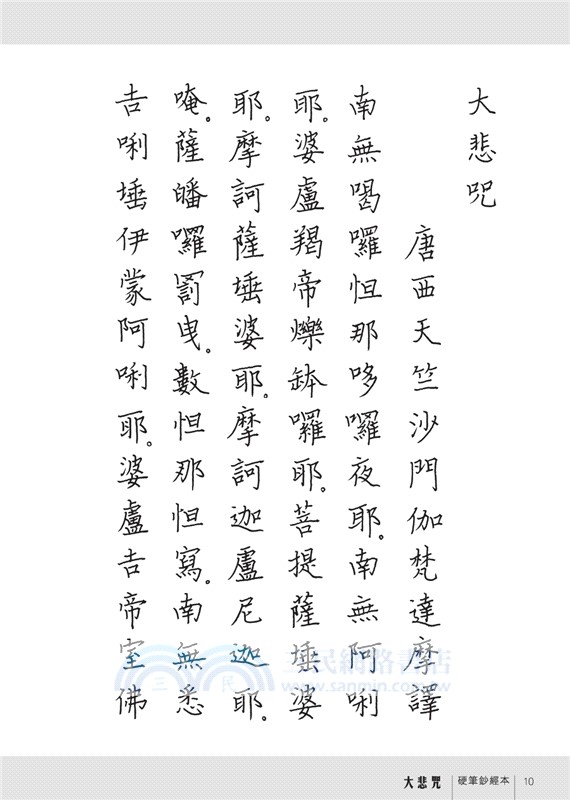 大悲咒
唐西天竺沙門伽梵達摩譯
南無喝囉怛那哆囉夜耶。南無阿唎
耶。婆盧羯帝爍缽囉耶。菩提薩埵婆
耶。摩訶薩埵婆耶。摩訶迦盧尼迦耶。
唵。薩皤囉罰曳。數怛那怛寫。南無悉
吉唎埵伊蒙阿唎耶。婆盧吉帝室佛
三民網路書店
www.sanmin.com.tw
三民
大悲咒 硬筆鈔經本 10